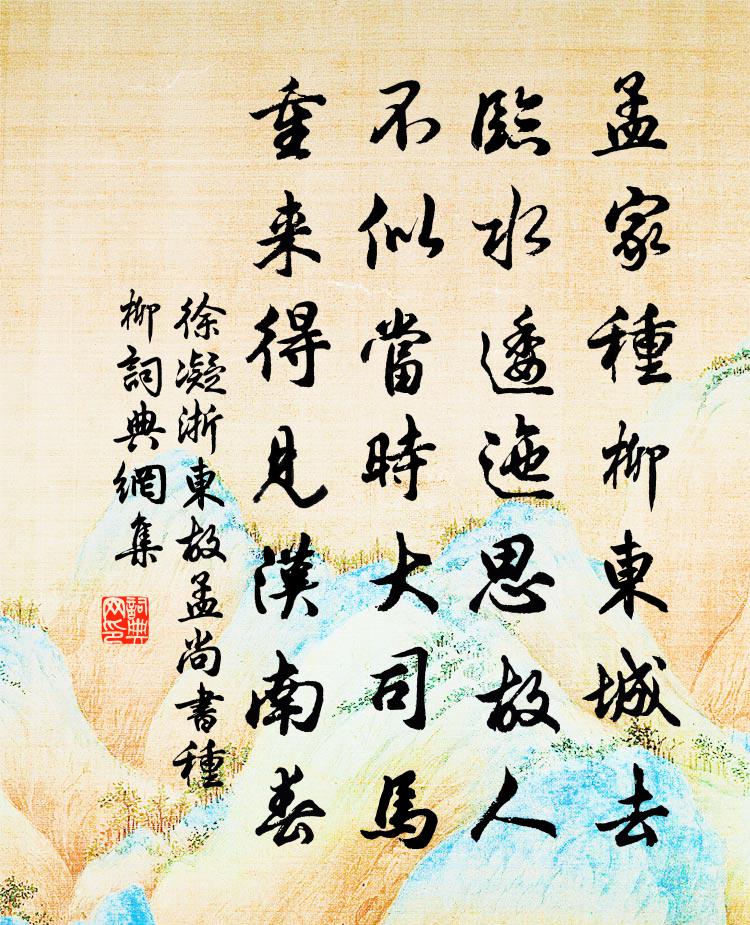 孟家種柳東城去
臨水逶迤思故人
不似當時大司馬
重来得見漢南春
徐凝浙東故孟尚書種
柳詞典網集
詞典
网印